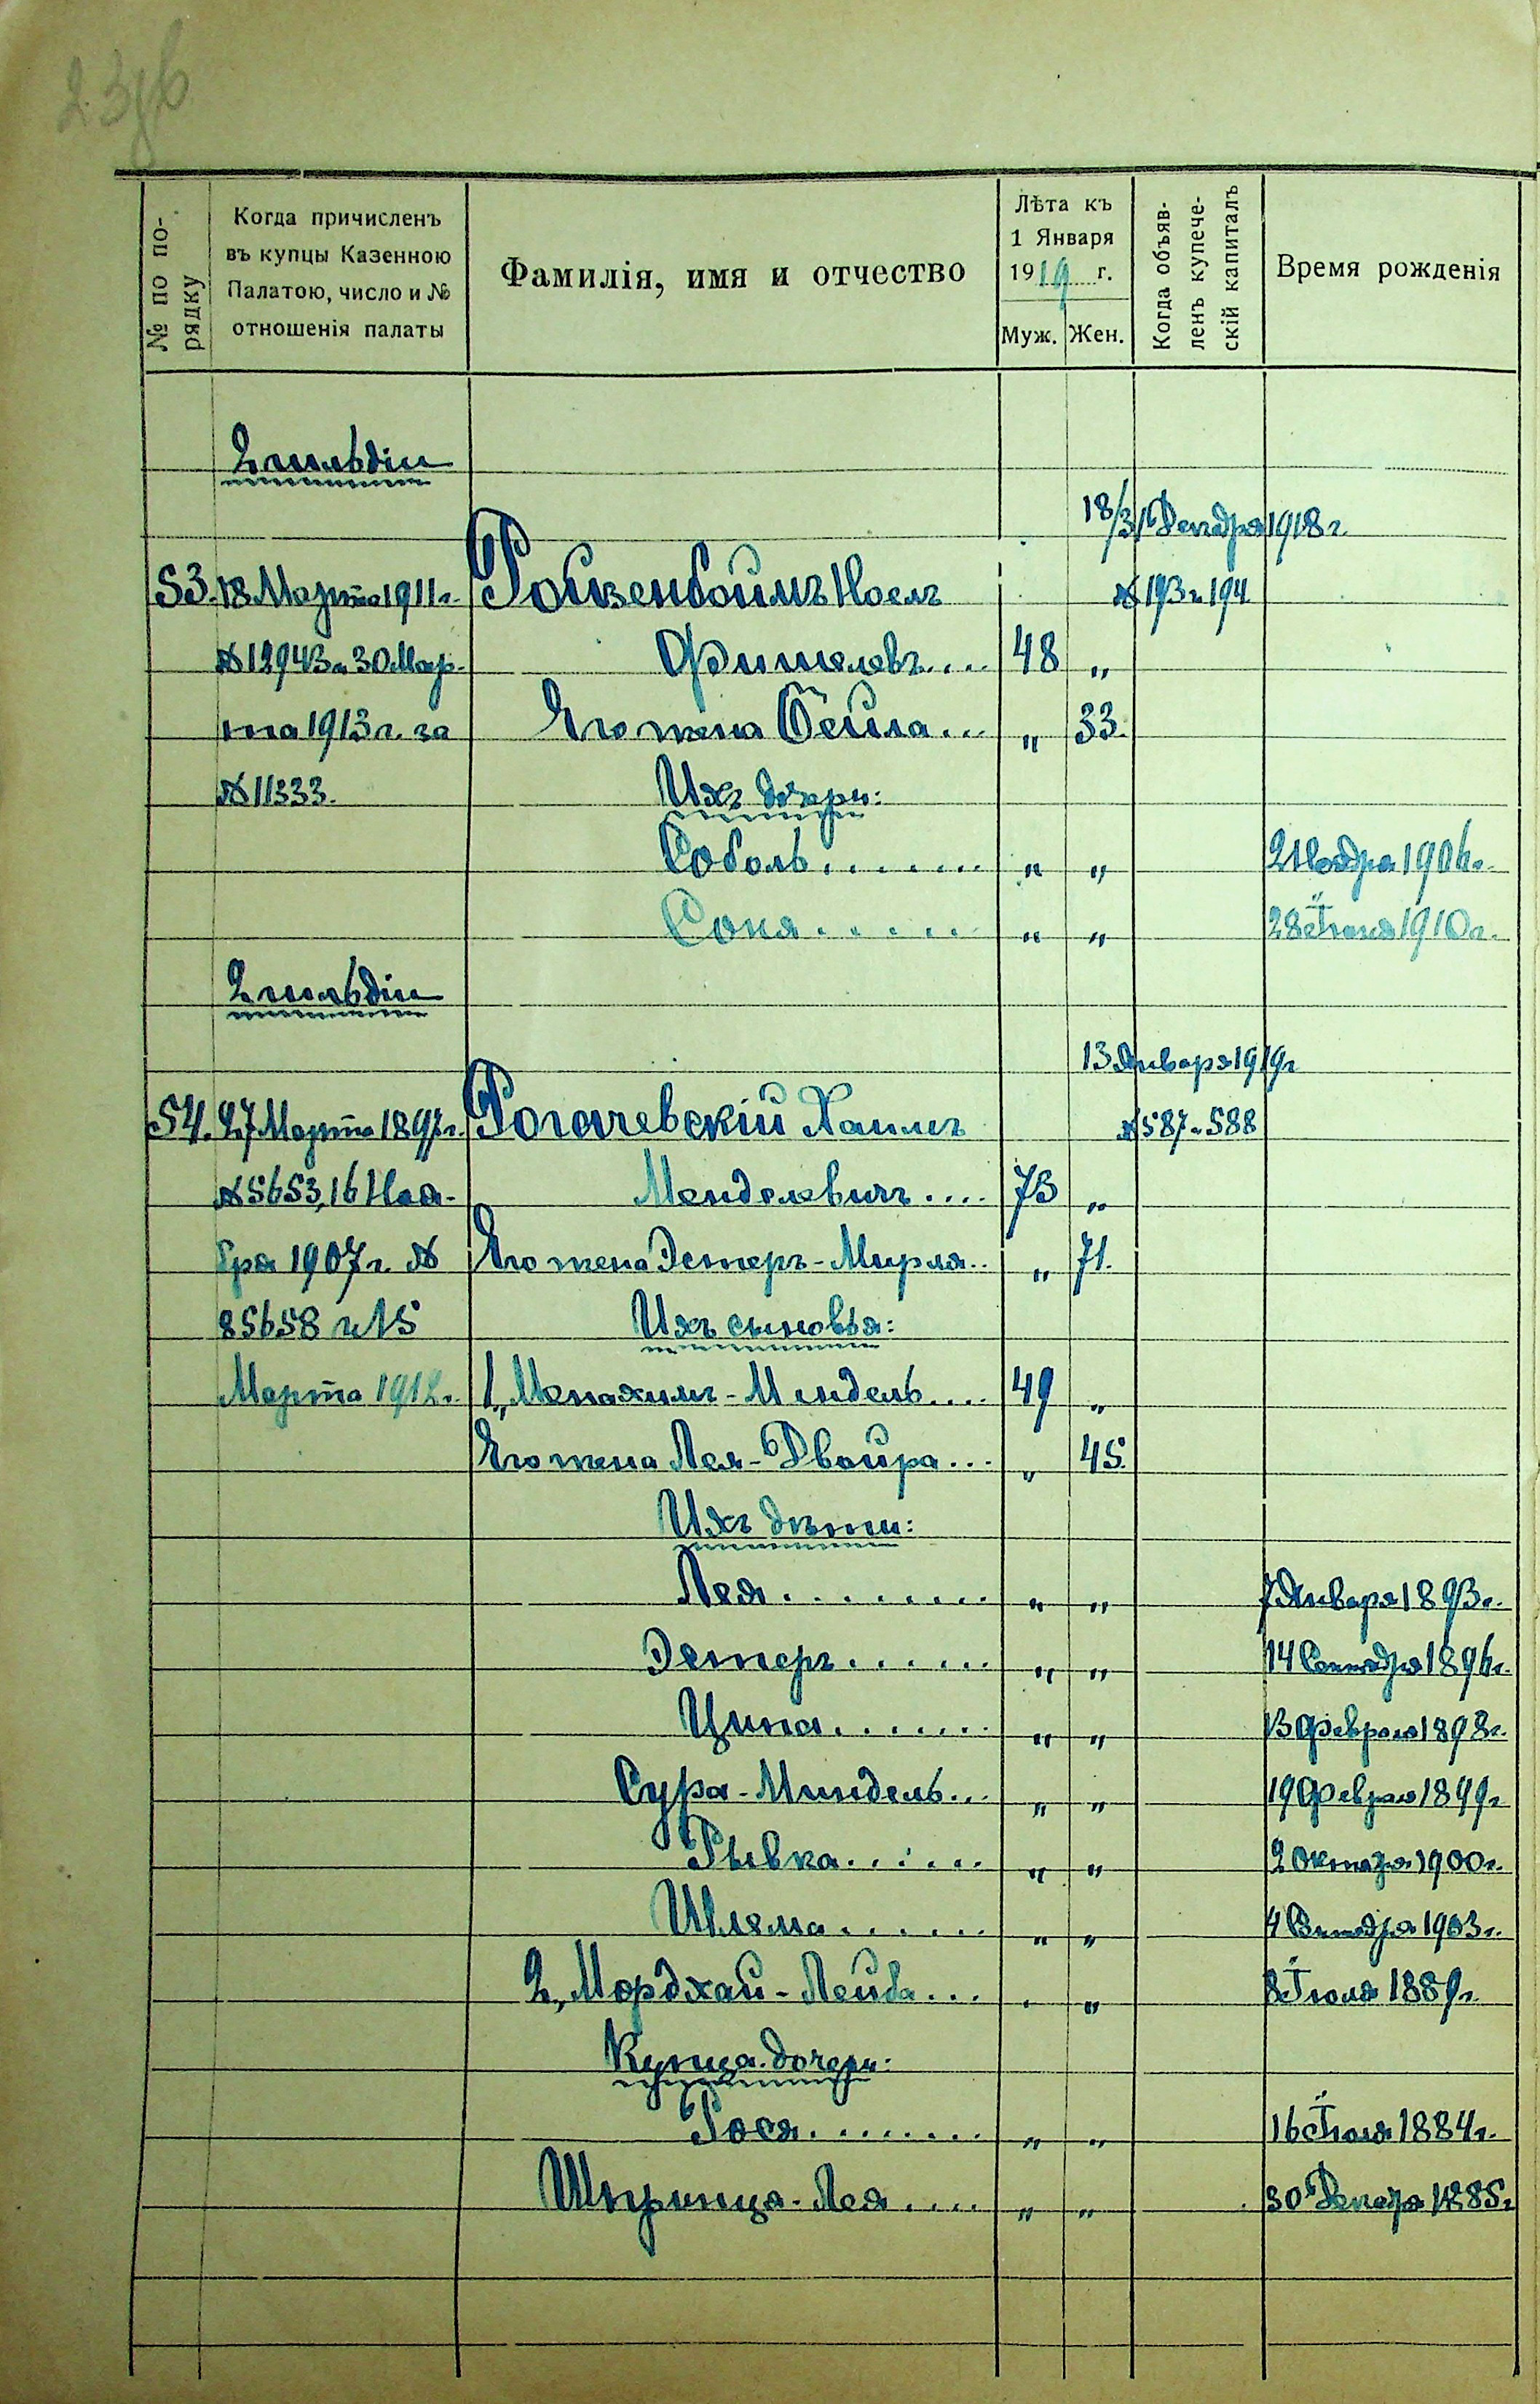 23об
№ по по-
рядку
Когда причисленъ
въ купцы Казенною
Палатою, число и №
отношенія палаты
Фамилія, имя и отчество
Лѣта къ
1 Января
1919 г.
Муж. Жен.
Когда объяв-
ленъ купече-
скій капиталъ
Время рожденія
2 гильдіи
18/31 Декабря 1918 г.
53. 18 Марта 1911 г. Ройзенбоймъ Іоель № 193 и 194
№ 12943 и 30 Мар- Фишелевъ.... 48 „
та 1913 г. за Его жена Бейла... „ 33.
№ 11333. Ихъ дочери:
Соболь........ „ „ 2 Ноября 1906 г.
Соня...... „ „ 28 Іюня 1910 г.
2 гильдіи
13 Января 1919 г
54. 27 Марта 1897 г. Рогачевскій Хаимъ № 587 и 588
№ 5653, 16 Ноя- Менделевичъ.... 73 „
бря 1907 г. № Его жена Эстеръ-Мирля.. „ 71.
85658 и 15 Ихъ сыновья:
Марта 1912 г. 1, Менахимъ-Мендель.... 49 „
Его жена Лея-Двойра... „ 45.
Ихъ дѣти:
Лея......... „ „ 7 Января 1893 г.
Эстеръ...... „ „ 14 Сентября 1896 г.
Цина....... „ „ 13 Февраля 1898 г.
Сура-Миндель... „ „ 19 Февраля 1899 г
Рывка...... „ „ 2 Октября 1900 г.
Шлема...... „ „ 4 Сентября 1903 г.
2, Мордхай-Лейба... „ „ 8 Іюля 1889 г.
Купца дочери:
Рося........ „ „ 16 Іюля 1884 г.
Шпринца-Лея.... „ „ 30 Декабря 1885 г